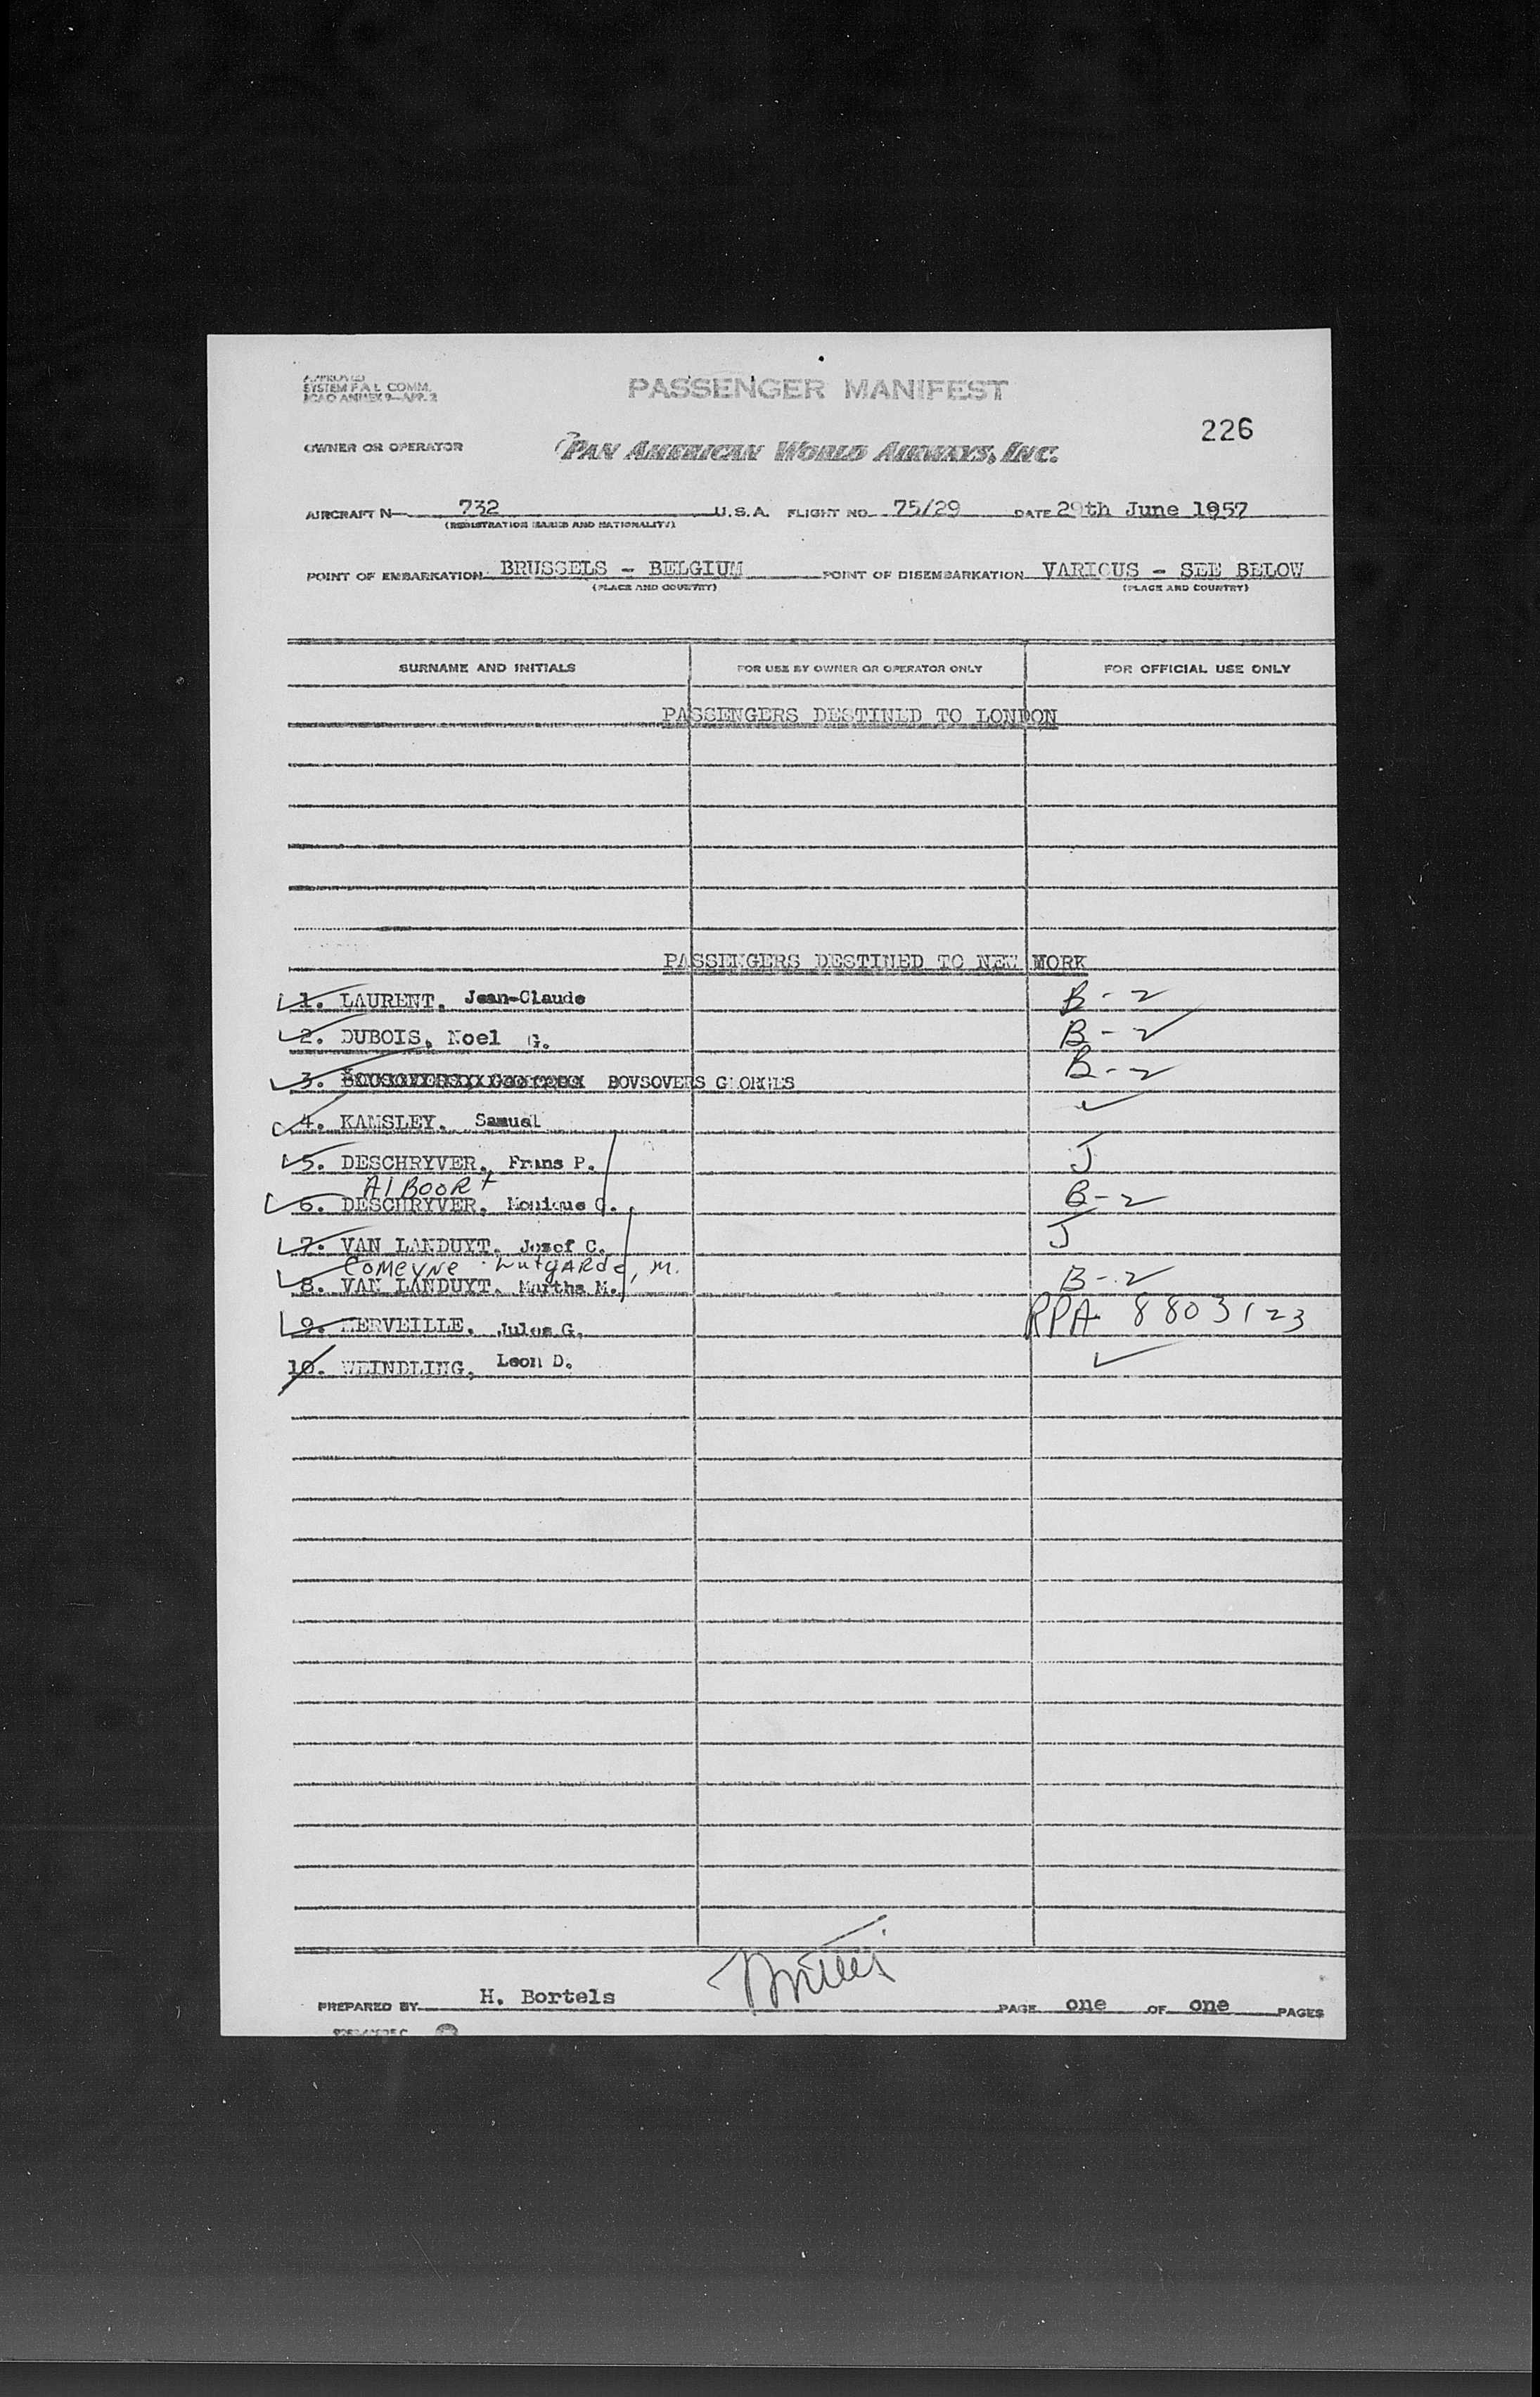 APPROVED
SYSTEM F.A.L. COMM.
ICAO ANNEX 9—APP. 2
PASSENGER MANIFEST
226
OWNER OR OPERATOR PAN AMERICAN WORLD AIRWAYS, INC.
AIRCRAFT N— 732 U.S.A. FLIGHT NO. 75/29 DATE 29th June 1957
(REGISTRATION MARKS AND NATIONALITY)
POINT OF EMBARKATION BRUSSELS - BELGIUM POINT OF DISEMBARKATION VARIOUS - SEE BELOW
(PLACE AND COUNTRY) (PLACE AND COUNTRY)
SURNAME AND INITIALS FOR USE BY OWNER OR OPERATOR ONLY FOR OFFICIAL USE ONLY
PASSENGERS DESTINED TO LONDON
PASSENGERS DESTINED TO NEW YORK
1. LAURENT, Jean-Claude B-2
2. DUBOIS, Noel G. B-2
3. BOVSOVERS GEORGES B-2
4. KAMSLEY, Samuel
5. DESCHRYVER, Frans P. J
AlBOORt
6. DESCHRYVER, Monique G. B-2
7. VAN LANDUYT, Jozef C. J
COMEYNE LutgARde, M.
8. VAN LANDUYT, Martha M. B-2
9. MERVEILLE, Jules G. RPA 8803123
10. WEINDLING, Leon D.
PREPARED BY H. Bortels PAGE one OF one PAGES